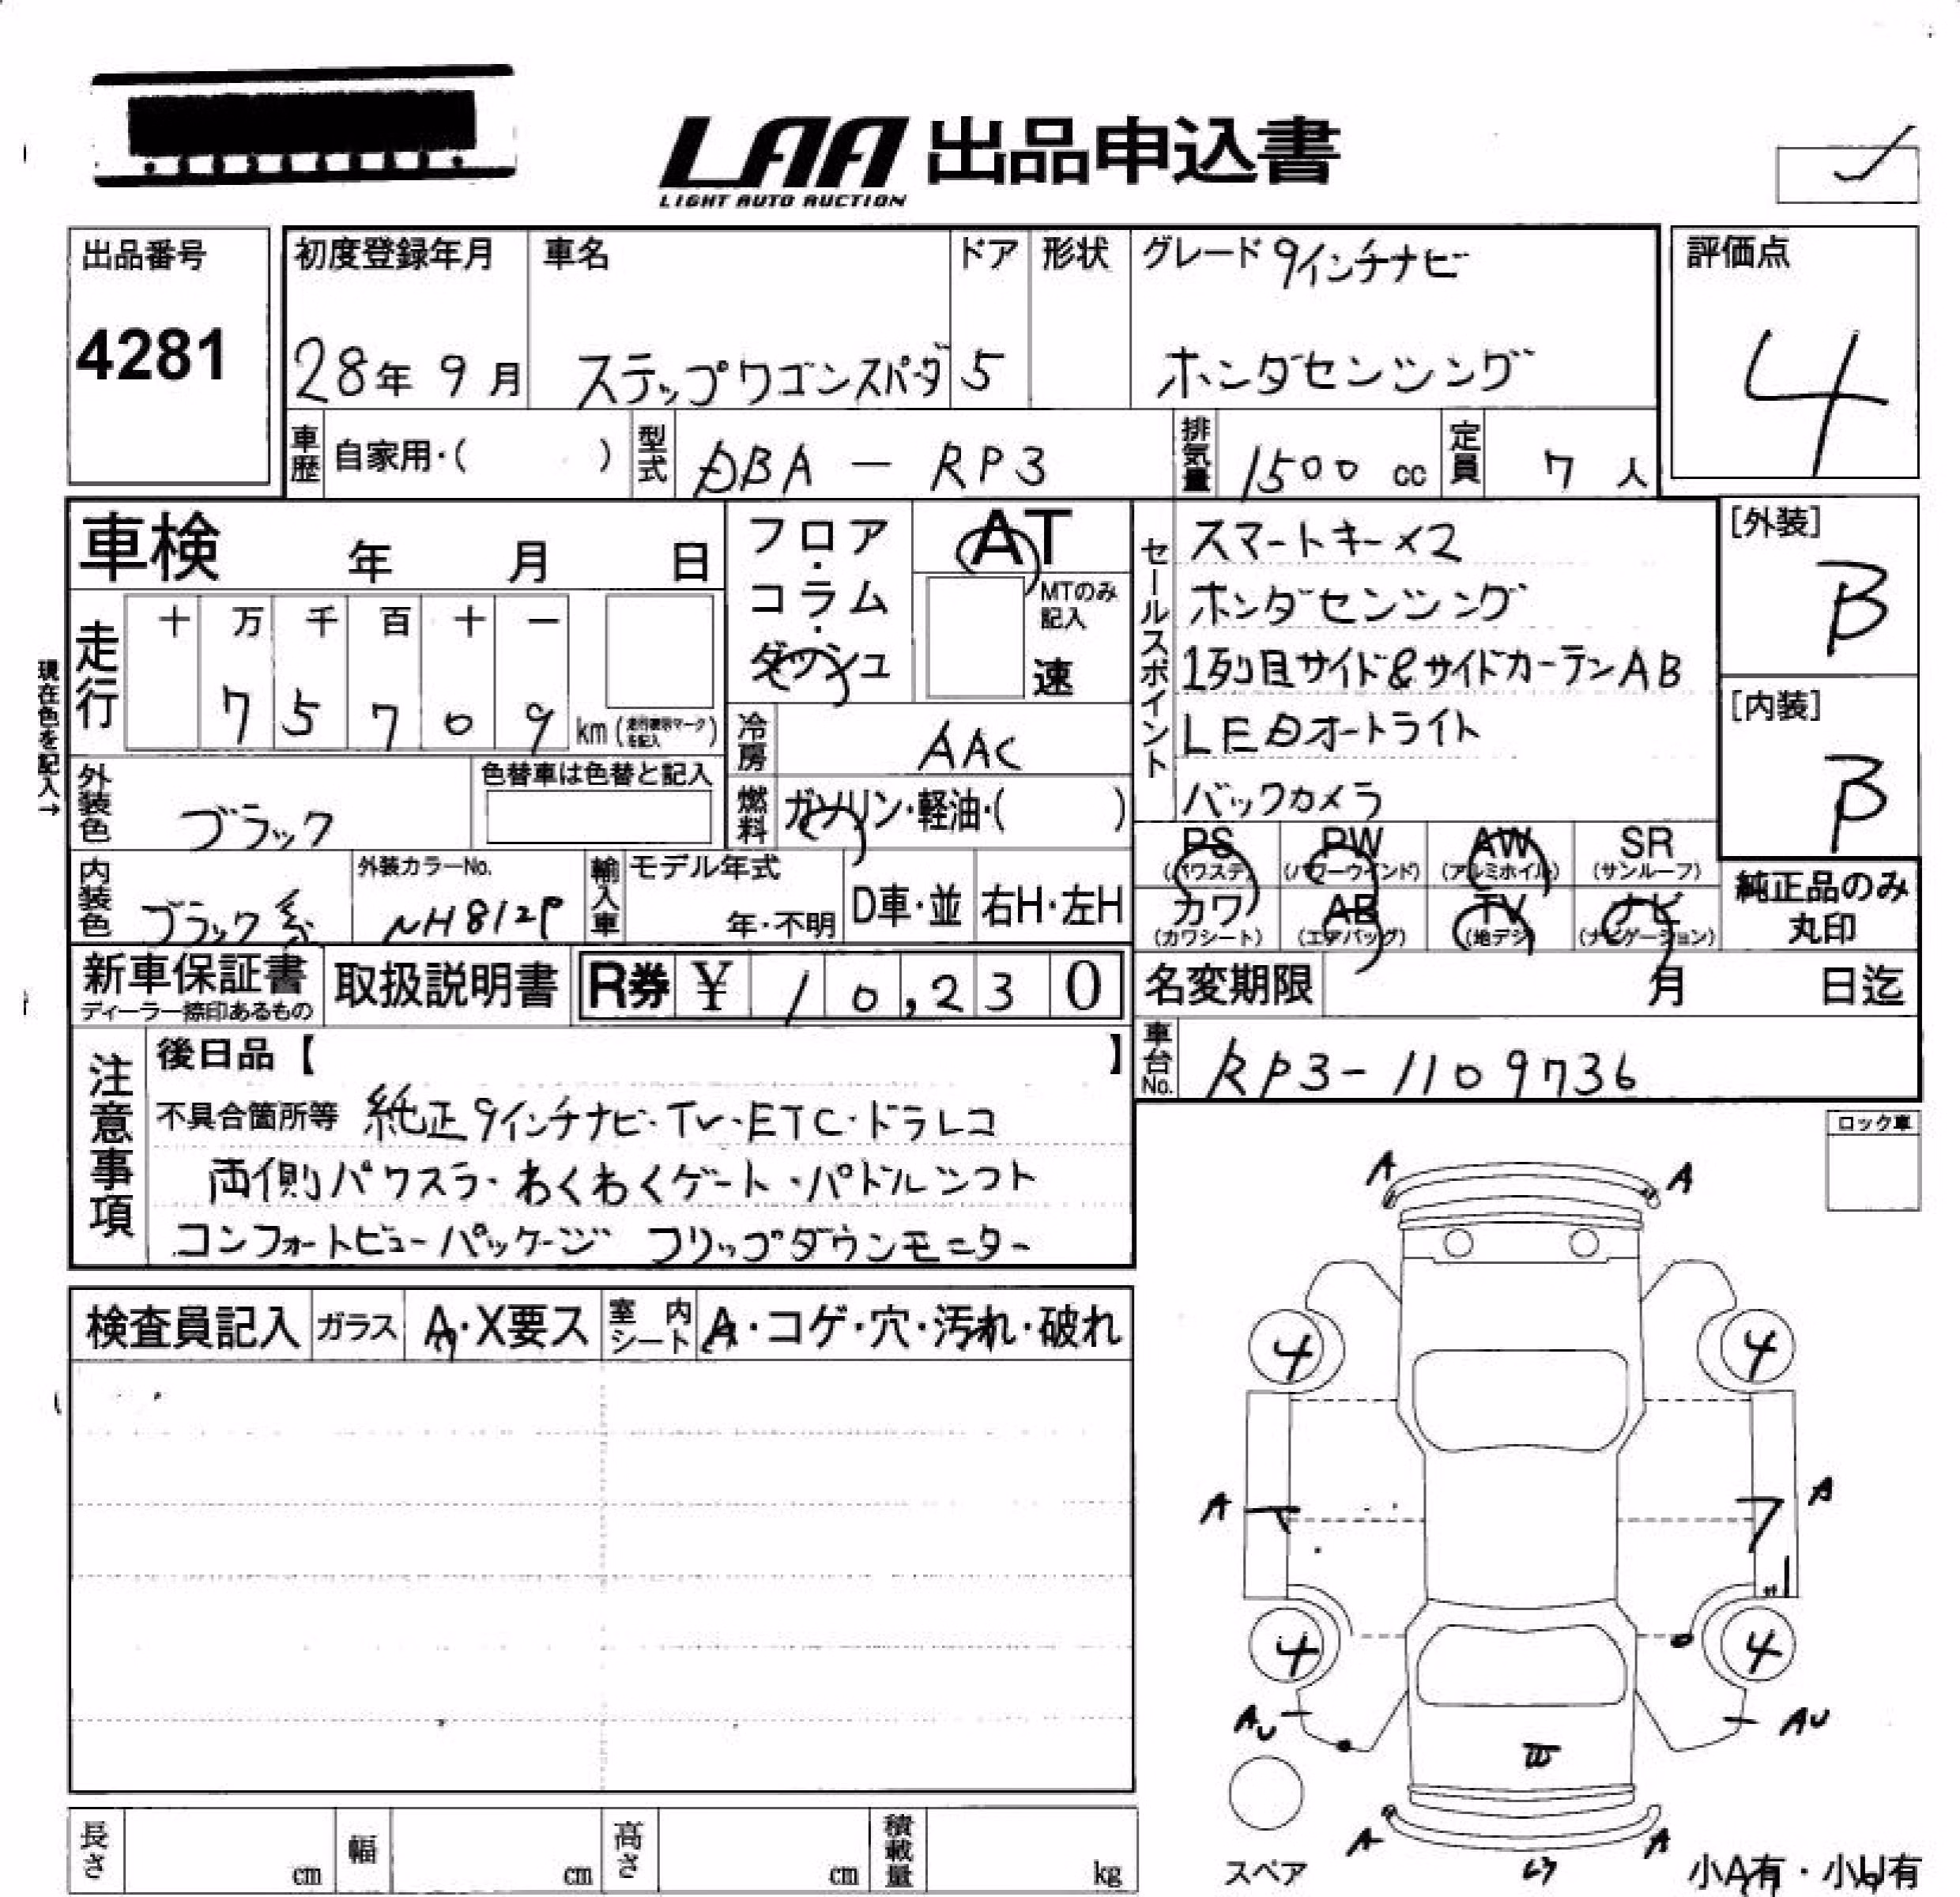 LAA 出品申込書
LIGHT AUTO AUCTION
出品番号
4281
初度登録年月
28年 9月
車名
ステップワゴンスパーダ
ドア
5
形状
グレード 9インチナビ
ホンダセンシング
評価点
4
車歴 自家用・( )
型式 DBA - RP3
排気量 1500 cc
定員 7 人
車検 年 月 日
走行
十 万 千 百 十 一
7 5 7 0 9 km
現在色を記入→
フロア・コラム・ダッシュ
AT
MTのみ記入
速
冷房 AAC
燃料 ガソリン・軽油・( )
セールスポイント
スマートキー×2
ホンダセンシング
1列目サイド&サイドカーテンAB
LEDオートライト
バックカメラ
[外装]
B
[内装]
B
外装色 ブラック
色替車は色替と記入
内装色 ブラック系
外装カラーNo.
NH812P
輸入車
モデル年式
年・不明
D車・並
右H・左H
PS (パワステ)
PW (パワーウインド)
AW (アルミホイル)
SR (サンルーフ)
カワ (カワシート)
AB (エアバッグ)
TV (地デジ)
ナビ (ナビゲーション)
純正品のみ丸印
新車保証書
ディーラー捺印あるもの
取扱説明書
R券 ¥ 10,230
名変期限 月 日迄
車台No. RP3-1109736
注意事項
後日品【 】
不具合箇所等 純正9インチナビ・TV・ETC・ドラレコ
両側パワスラ・わくわくゲート・パドルシフト
コンフォートビューパッケージ フリップダウンモニター
ロック車
検査員記入
ガラス A・X要ス
室内シート A・コゲ・穴・汚れ・破れ
A A
4 4
A A
4 4
AU AU
A A
スペア
小A有・小U有
長さ cm
幅 cm
高さ cm
積載量 kg